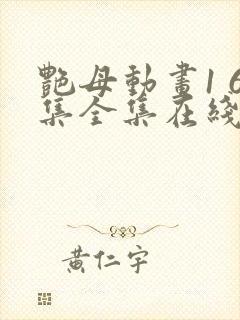 艷母動畫1 6
集全集在綫
黃仁宇